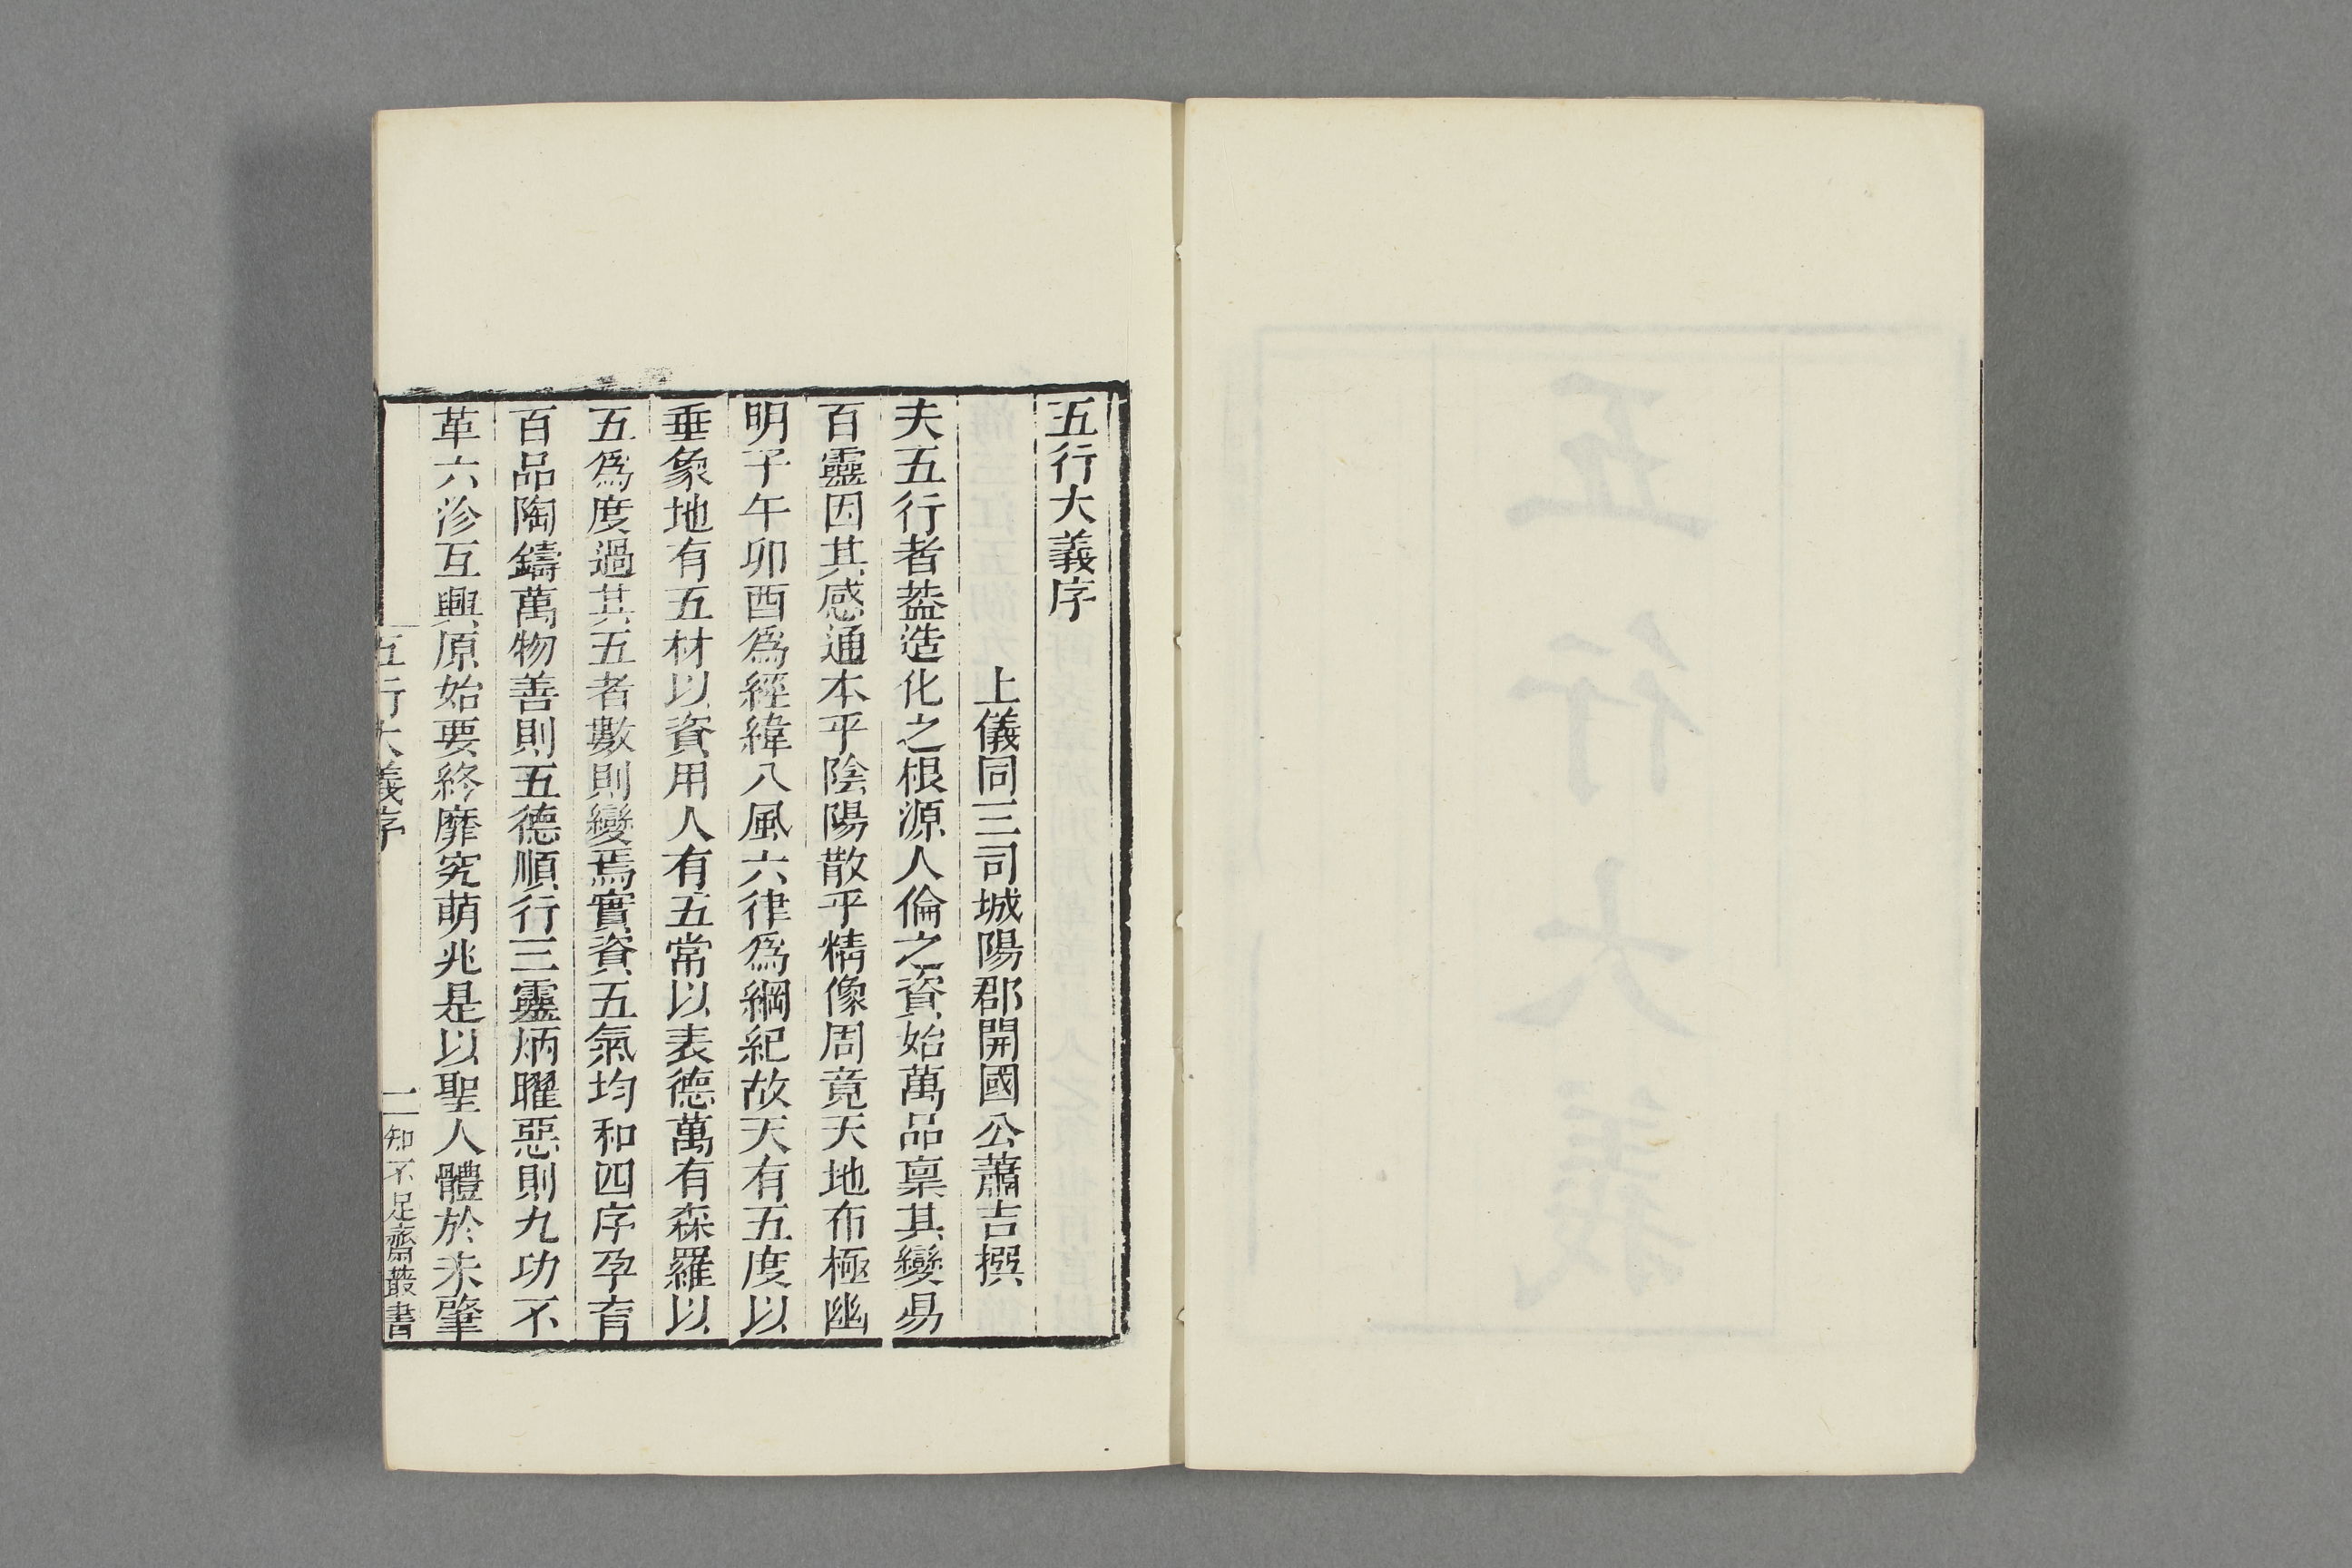 五行大義序
上儀同三司城陽郡開國公蕭吉撰
夫五行者葢造化之根源人倫之資始萬品稟其變易
百靈因其感通本乎陰陽散乎精像周竟天地布極幽
明子午卯酉爲經緯八風六律爲綱紀故天有五度以
垂象地有五材以資用人有五常以表德萬有森羅以
五爲度過其五者數則變焉實資五氣均和四序孕育
百品陶鑄萬物善則五德順行三靈炳曜惡則九功不
革六沴互興原始要終靡究萌兆是以聖人體於未肇
五行大義序
一知不足齋叢書